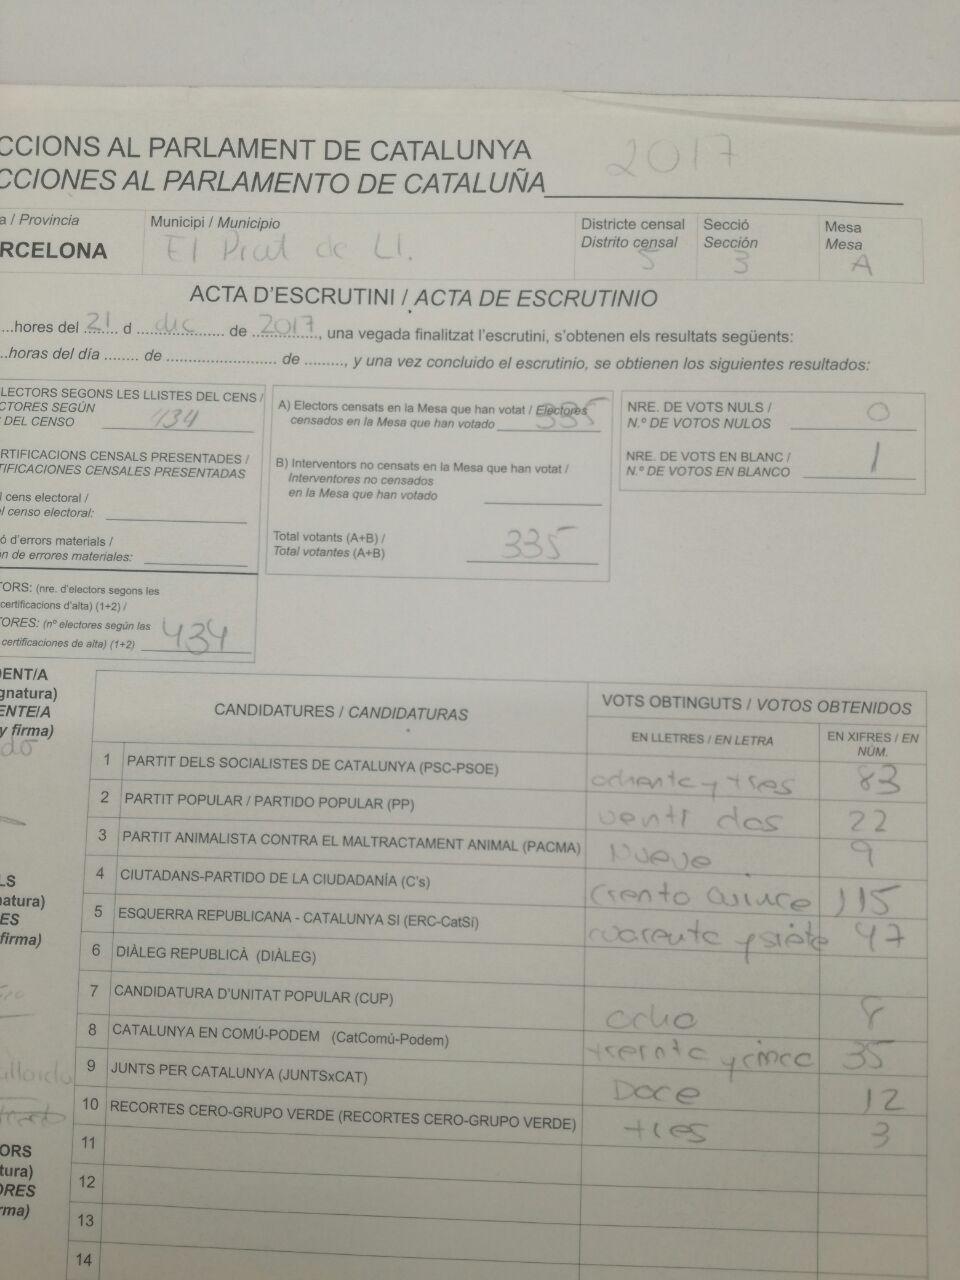 CCIONS AL PARLAMENT DE CATALUNYA
CCIONES AL PARLAMENTO DE CATALUÑA 2017
a / Provincia
RCELONA
Municipi / Municipio
El Prat de Ll.
Districte censal
Distrito censal
5
Secció
Sección
3
Mesa
Mesa
A
ACTA D'ESCRUTINI / ACTA DE ESCRUTINIO
...hores del 21 d dic de 2017, una vegada finalitzat l'escrutini, s'obtenen els resultats següents:
..horas del día ........ de .......................... de ........., y una vez concluido el escrutinio, se obtienen los siguientes resultados:
LECTORS SEGONS LES LLISTES DEL CENS /
CTORES SEGÚN
DEL CENSO 434
RTIFICACIONS CENSALS PRESENTADES /
TIFICACIONES CENSALES PRESENTADAS
l cens electoral /
l censo electoral:
ó d'errors materials /
ón de errores materiales:
TORS: (nre. d'electors segons les
certificacions d'alta) (1+2) /
TORES: (nº electores según las
certificaciones de alta) (1+2) 434
A) Electors censats en la Mesa que han votat / Electores
censados en la Mesa que han votado 335
B) Interventors no censats en la Mesa que han votat /
Interventores no censados
en la Mesa que han votado
Total votants (A+B) /
Total votantes (A+B) 335
NRE. DE VOTS NULS /
N.º DE VOTOS NULOS 0
NRE. DE VOTS EN BLANC /
N.º DE VOTOS EN BLANCO 1
DENT/A
gnatura)
ENTE/A
y firma)
LS
natura)
ES
firma)
ORS
tura)
ORES
rma)
CANDIDATURES / CANDIDATURAS
VOTS OBTINGUTS / VOTOS OBTENIDOS
EN LLETRES / EN LETRA
EN XIFRES / EN
NÚM.
1 PARTIT DELS SOCIALISTES DE CATALUNYA (PSC-PSOE) ochenta y tres 83
2 PARTIT POPULAR / PARTIDO POPULAR (PP) venti dos 22
3 PARTIT ANIMALISTA CONTRA EL MALTRACTAMENT ANIMAL (PACMA) Nueve 9
4 CIUTADANS-PARTIDO DE LA CIUDADANÍA (C's) Ciento Quince 115
5 ESQUERRA REPUBLICANA - CATALUNYA SI (ERC-CatSí) cuarenta y siete 47
6 DIÀLEG REPUBLICÀ (DIÀLEG)
7 CANDIDATURA D'UNITAT POPULAR (CUP) ocho 8
8 CATALUNYA EN COMÚ-PODEM (CatComú-Podem) treinta y cinco 35
9 JUNTS PER CATALUNYA (JUNTSxCAT) Doce 12
10 RECORTES CERO-GRUPO VERDE (RECORTES CERO-GRUPO VERDE) tres 3
11
12
13
14